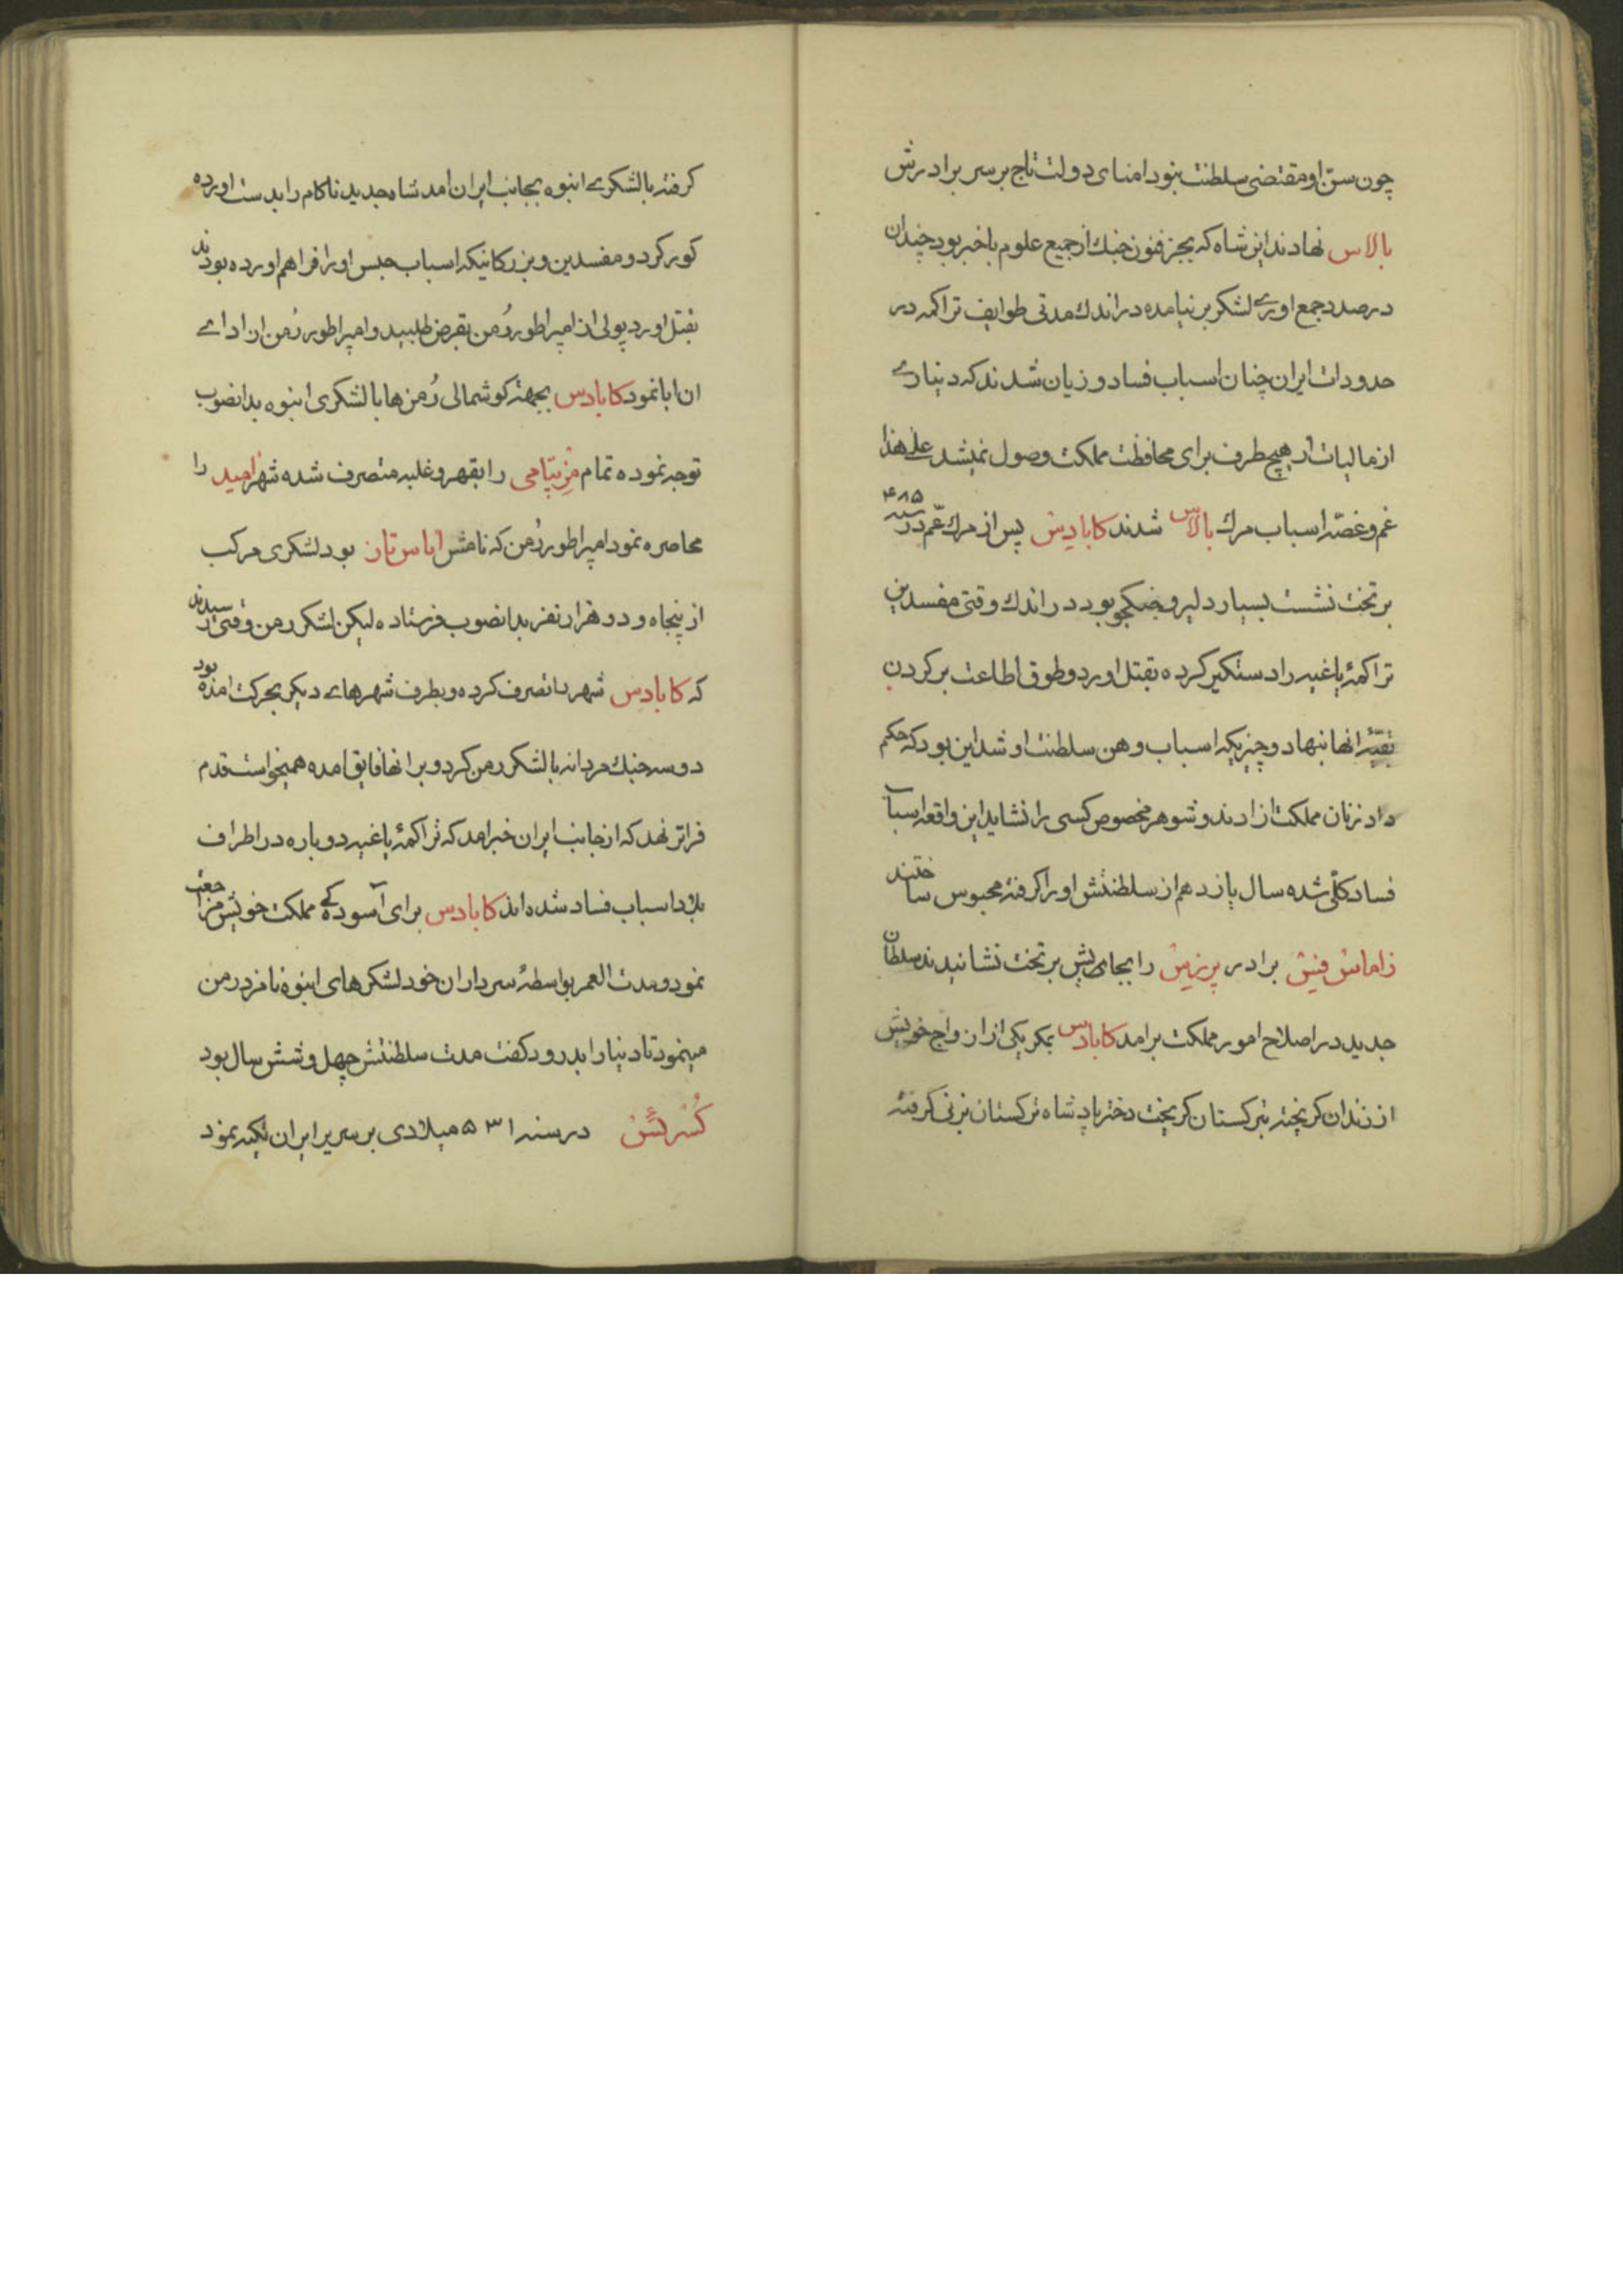 چون سنّ او مقتضی سلطنت نبود امنای دولت تاج بر سر برادرش
بالاس نهادند این شاه که بجز فنون جنك از جمیع علوم باخبر بود چندان
در صدد جمع اوری لشکر برنیامده در اندك مدتی طوایف تراکمه در
حدودات ایران چنان اسباب فساد و زیان شدند که دیناری
از مالیات از هیچ طرف برای محافظت مملکت وصول نمیشد علی هذا
غم و غصّه اسباب مرك بالاس شدند کابادیس پس از مرك عّم در سنه ۴۸۵
بر تخت نشست بسیار دلیر و جنکجو بود در اندك وقتی مفسدین
تراکمهٔ یاغیه را دستکیر کرده بقتل اورد و طوق اطاعت بر کردن
بقیّهٔ انها بنهاد و چیزیکه اسباب وهن سلطنت او شد این بود که حکم
داد زنان مملکت ازادند و شوهر مخصوص کسی را نشاید این واقعه اسباب
فساد کلّی شده سال یازدهم از سلطنتش او را کرفته محبوس ساختند
زاماسش فینش برادر پرزیش را بجای پیش بر تخت نشانیدند سلطان
جدید در اصلاح امور مملکت برامد کابادس بمکر یکی از ازواج خویش
از زندان کریخته بترکستان کریخت دختر پادشاه ترکستان بزنی کرفته
کرفته با لشکری انبوه بجانب ایران امد شاه جدید ناکام را بدست اورده
کور کرد و مفسدین و بزرکانیکه اسباب حبس او را فراهم اورده بودند
بقتل اورد پولی از امپراطور رُمن بقرض طلبید و امپراطور رُمن از ادای
ان ابا نمود کابادس بجهته کوشمالی رُمن ها با لشکری انبوه بدانصوب
توجه نموده تمام مزپتامی را بقهر و غلبه متصرف شده شهر امید را
محاصره نمود امپراطور رُمن که نامش اباس تاز بود لشکری مرکب
از پنجاه و دو هزار نفر بدانصوب فرستاده لیکن لشکر رمن وقتی رسیدند
که کابادس شهر را تصرف کرده و بطرف شهرهای دیکر بحرکت امده بود
دو سه جنك مردانه با لشکر رمن کرد و بر انها فایق امده همیخواست قدم
فراتر نهد که از جانب ایران خبر امد که تراکمهٔ یاغیه دوباره در اطراف
بلاد اسباب فساد شده اند کابادس برای آسوده کی مملکت خویش مراجعت
نمود و مدت العمر بواسطهٔ سرداران خود لشکرهای انبوه نامزد رمن
مینمود تا دنیا را بدرود کفت مدت سلطنتش چهل و شش سال بود
کُسْرئش در سنه ۵۳۱ میلادی بر سریر ایران تکیه نمود